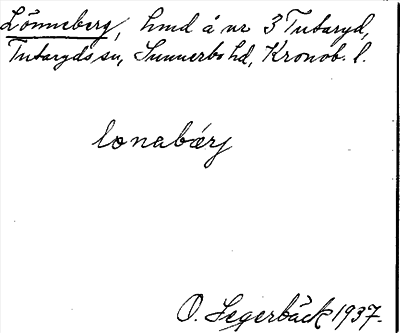 Lönneberg, hmd å nr 3 Tutaryd,
Tutaryds sn, Sunnerbo hd, Kronob. l.
lonabærj
O. Segerbäck 1937.